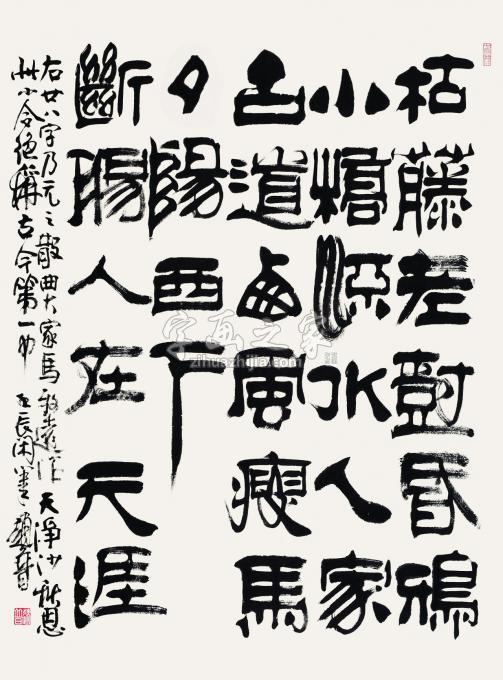 枯藤老尌昏鴉
小橋流水人家
古道西風瘦馬
夕陽西下
斷腸人在天涯
右廿八字乃元之散曲大家馬致遠作天淨沙秋思
此小令絕稱古今第一也 壬辰閑筆
字画之家
zihuazhijia.com